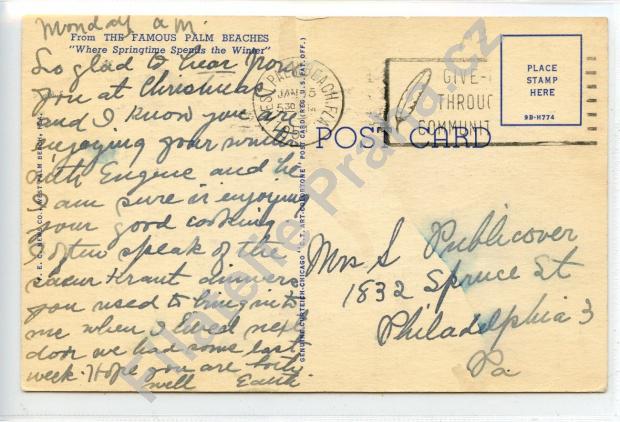 Monday a.m.
From THE FAMOUS PALM BEACHES
"Where Springtime Spends the Winter"
So glad to hear from
you at Christmas
and I know you are
enjoying your
with Eugene and he
I am sure is enjoying
your good cooking
I often speak of the
saeur Kraut dinners
you used to bring into
me when I lived next
door we had some last
week. Hope you are both
well
WEST PALM BEACH, FLA.
JAN 5
530 PM
GIVE-
THROUG
COMMUNIT
PLACE
STAMP
HERE
9B-H774
POST CARD
Mrs S Publicover
1832 Spruce St
Philadelphia 3
Pa
GENUINE CURTEICH-CHICAGO "C.T. ART-COLORTONE" POST CARD (REG. U.S. PAT. OFF.)
Filatelie Praha.cz